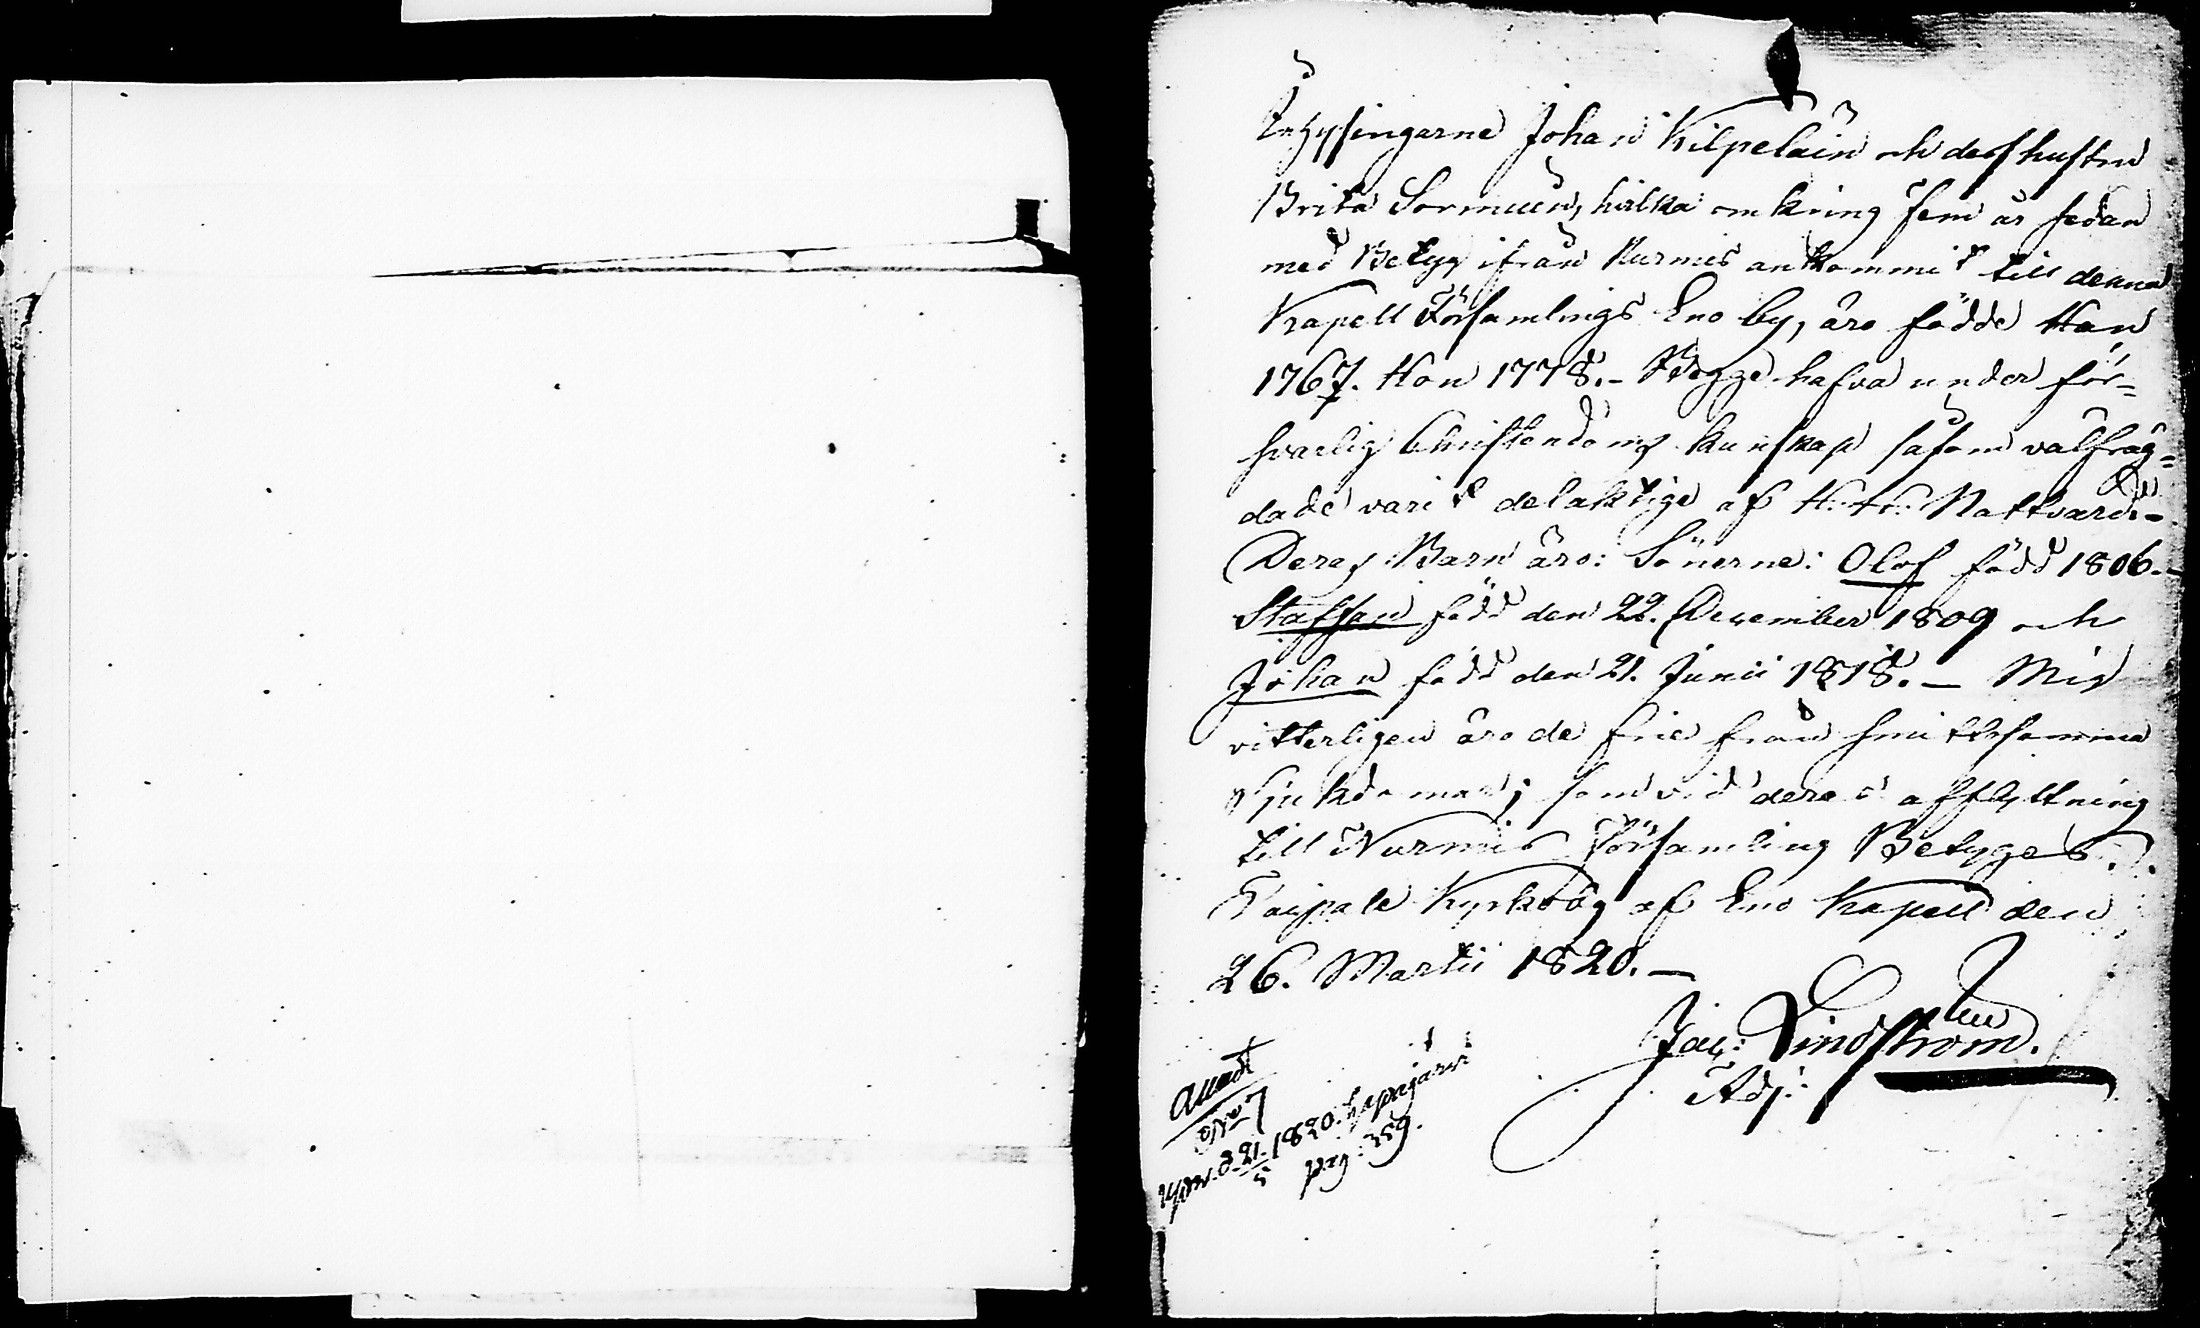 Inhysingarne Johan Kilpeläin och dess hustru
Brita Sormuin, hvilka omkring fem år sedan
med Betyg ifrån Nurmis ankommit till denna
Kapell Församlings Eno by, äro födde Han
1767. Hon 1778. - Begge hafva under för-
svarlig Christendoms kunskap såsom välfräg-
dade varit delaktige af H. H. Nattvard. -
Deras Barn äro: Sönerne: Olof född 1806. -
Staffan född den 22. December 1809 och
Johan född den 21. Junii 1818. - Mig
vitterligen äro de frie från smittosamma
Sjukdomar; som vid deras afflyttning
till Nurmis Församling Betygas.
Taipale Kyrkoby af Eno Kapell den
26. Martii 1820. -
Jac: Lindström.
Adj:
No 7
d. 21/5 1820.
pag: 359.